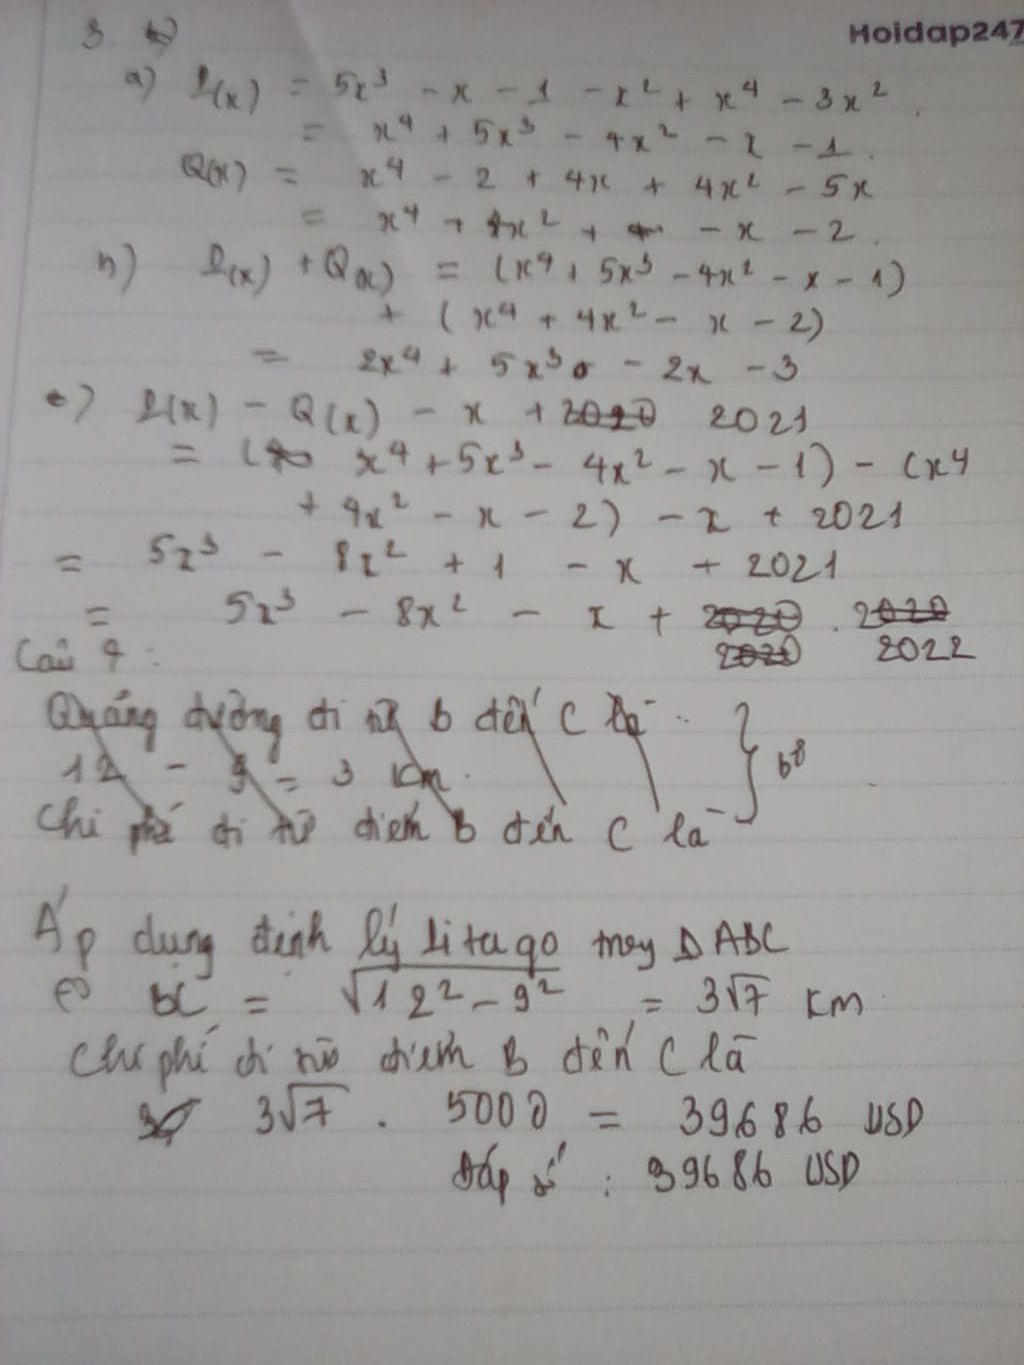 Hoidap247
3.
a) P(x) = 5x³ - x - 1 - x² + x⁴ - 3x²
= x⁴ + 5x³ - 4x² - x - 1.
Q(x) = x⁴ - 2 + 4x + 4x² - 5x
= x⁴ + 4x² + - x - 2.
b) P(x) + Q(x) = (x⁴ + 5x³ - 4x² - x - 1)
+ (x⁴ + 4x² - x - 2)
= 2x⁴ + 5x³ - 2x - 3
c) P(x) - Q(x) - x + 2020 2021
= ( x⁴ + 5x³ - 4x² - x - 1) - (x⁴
+ 4x² - x - 2) - x + 2021
= 5x³ - 8x² + 1 - x + 2021
= 5x³ - 8x² - x + 2020 . 2020
2020 2022
Câu 4 :
Quảng đường đi từ B đến C là
12 - 9 = 3 Km.
Chi phí đi từ điểm B đến C là
} bỏ
Áp dụng định lý Pitago trong Δ ABC
BC = √12² - 9² = 3√7 Km
Chi phí đi từ điểm B đến C là
3√7 . 5000 = 39686 USD
Đáp số : 39686 USD